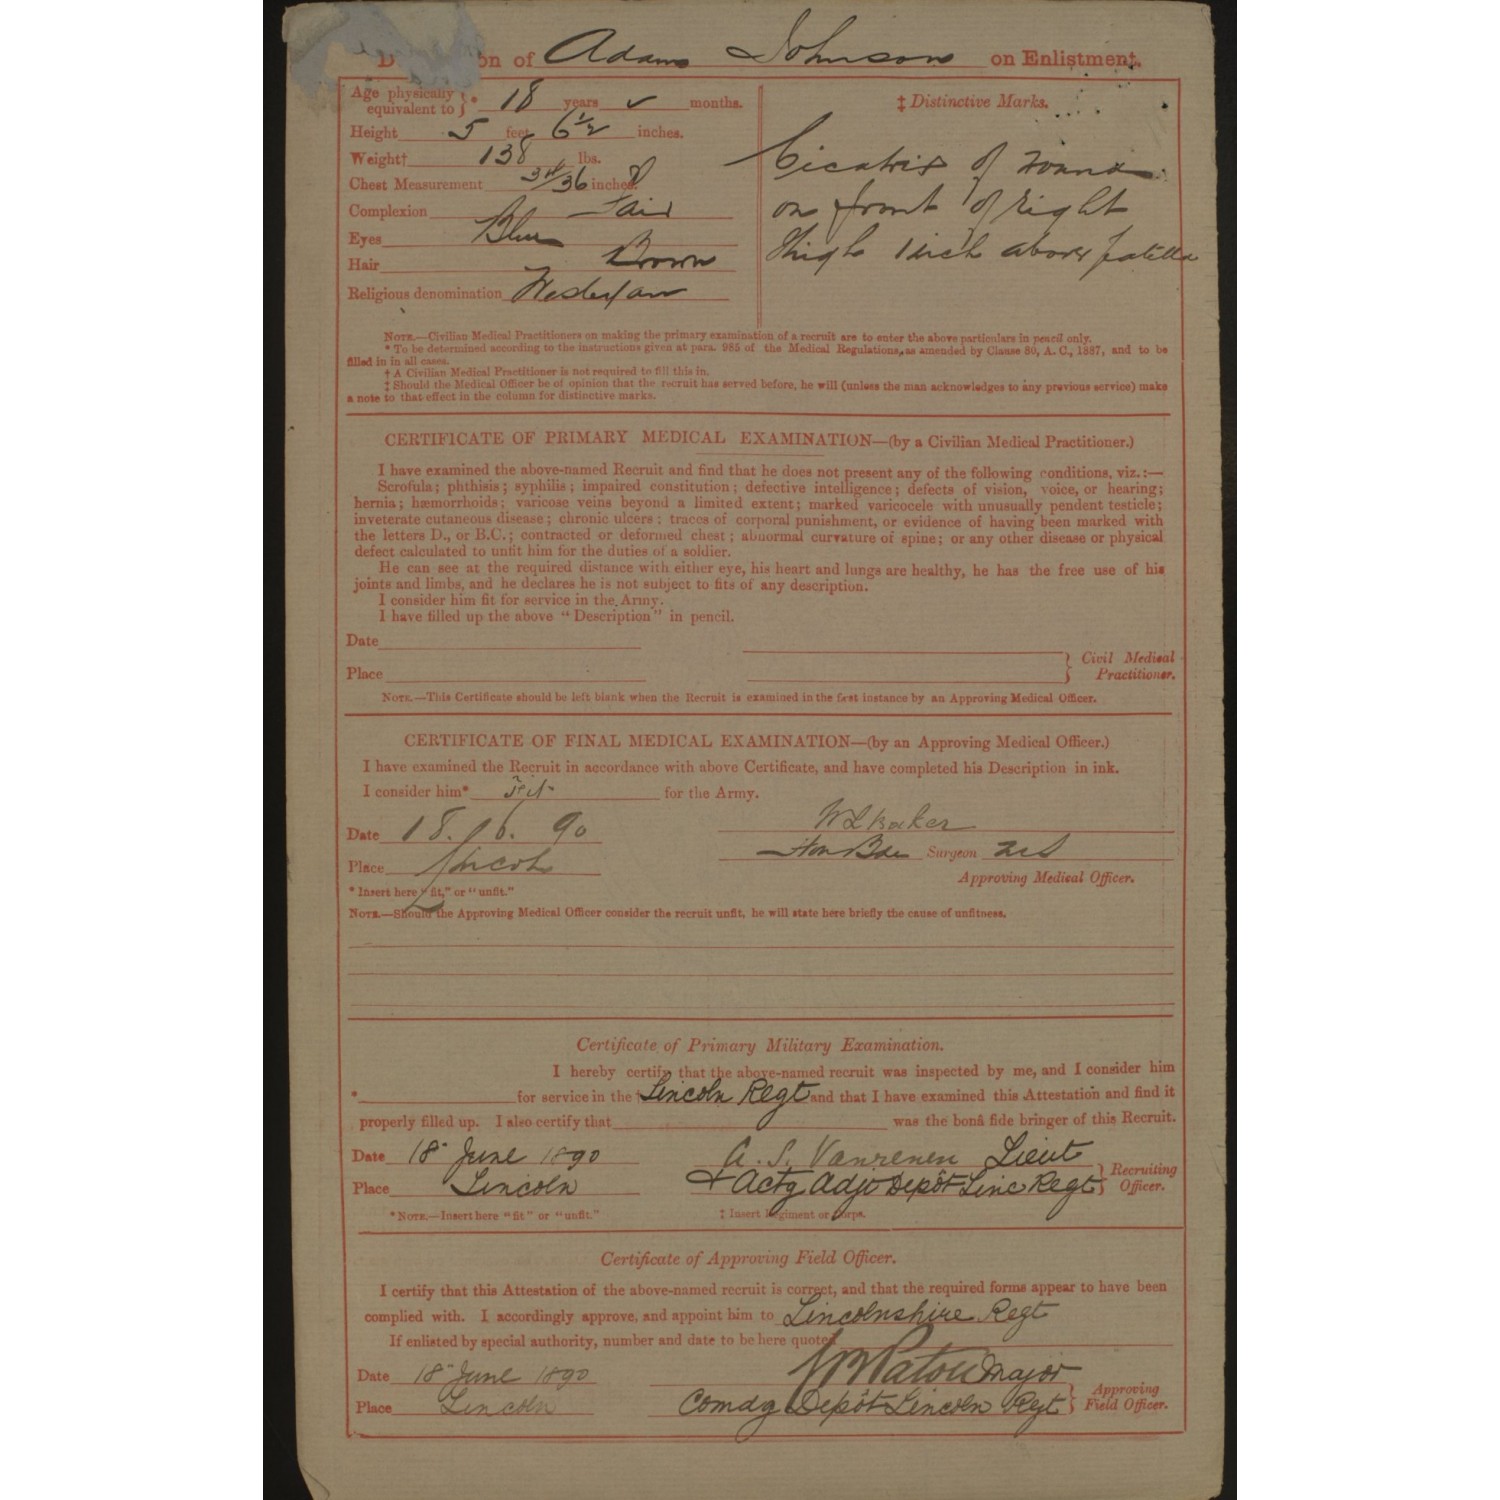 on of Adam Johnson on Enlistment.
Age physically equivalent to } * 18 years ✓ months.
Height 5 feet 6 1/2 inches.
Weight† 138 lbs.
Chest Measurement 36 inches.
Complexion Fair
Eyes Blue
Hair Brown
Religious denomination Wesleyan
‡ Distinctive Marks.
Cicatrix of wound
on front of right
thigh 1 inch above patella
NOTE.—Civilian Medical Practitioners on making the primary examination of a recruit are to enter the above particulars in pencil only.
* To be determined according to the instructions given at para. 985 of the Medical Regulations, as amended by Clause 80, A. C., 1887, and to be
filled in in all cases.
† A Civilian Medical Practitioner is not required to fill this in.
‡ Should the Medical Officer be of opinion that the recruit has served before, he will (unless the man acknowledges to any previous service) make
a note to that effect in the column for distinctive marks.
CERTIFICATE OF PRIMARY MEDICAL EXAMINATION—(by a Civilian Medical Practitioner.)
I have examined the above-named Recruit and find that he does not present any of the following conditions, viz.:—
Scrofula; phthisis; syphilis; impaired constitution; defective intelligence; defects of vision, voice, or hearing;
hernia; hæmorrhoids; varicose veins beyond a limited extent; marked varicocele with unusually pendent testicle;
inveterate cutaneous disease; chronic ulcers; traces of corporal punishment, or evidence of having been marked with
the letters D., or B.C.; contracted or deformed chest; abnormal curvature of spine; or any other disease or physical
defect calculated to unfit him for the duties of a soldier.
He can see at the required distance with either eye, his heart and lungs are healthy, he has the free use of his
joints and limbs, and he declares he is not subject to fits of any description.
I consider him fit for service in the Army.
I have filled up the above "Description" in pencil.
Date
Place
} Civil Medical
Practitioner.
NOTE.—This Certificate should be left blank when the Recruit is examined in the first instance by an Approving Medical Officer.
CERTIFICATE OF FINAL MEDICAL EXAMINATION—(by an Approving Medical Officer.)
I have examined the Recruit in accordance with above Certificate, and have completed his Description in ink.
I consider him* fit for the Army.
Date 18. 6. 90
Place Lincoln
W L Baker
Surgeon
Approving Medical Officer.
* Insert here "fit," or "unfit."
NOTE.—Should the Approving Medical Officer consider the recruit unfit, he will state here briefly the cause of unfitness.
Certificate of Primary Military Examination.
I hereby certify that the above-named recruit was inspected by me, and I consider him
* for service in the ‡ Lincoln Regt and that I have examined this Attestation and find it
properly filled up. I also certify that was the bonâ fide bringer of this Recruit.
Date 18" June 1890 A. S. Vanrenen Lieut
Place Lincoln & Actg Adjt Depôt Linc Regt } Recruiting Officer.
* NOTE.—Insert here "fit" or "unfit." ‡ Insert Regiment or Corps.
Certificate of Approving Field Officer.
I certify that this Attestation of the above-named recruit is correct, and that the required forms appear to have been
complied with. I accordingly approve, and appoint him to Lincolnshire Regt
If enlisted by special authority, number and date to be here quoted
Date 18" June 1890 Paton Major
Place Lincoln Comdg Depôt Lincoln Regt } Approving Field Officer.